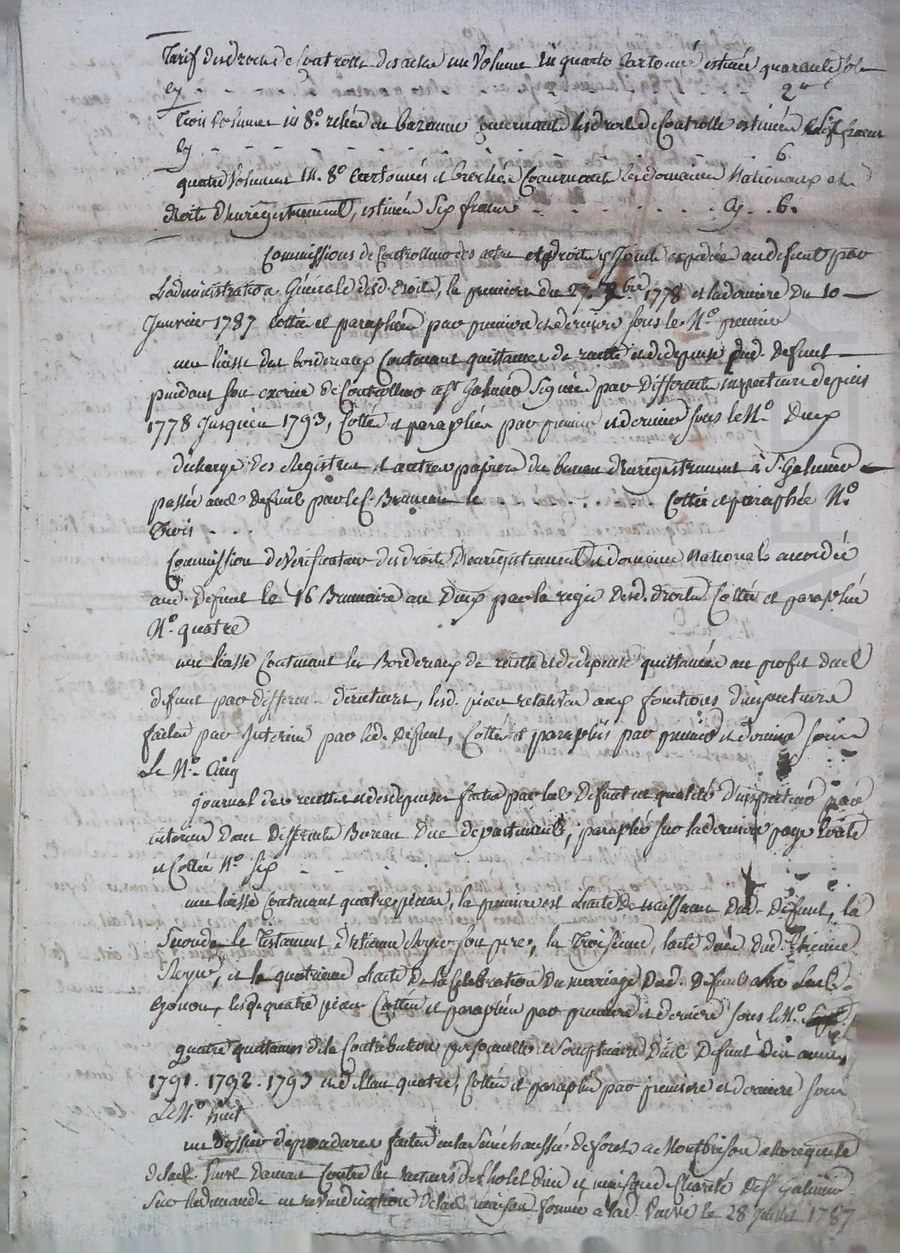 Tarif des droits de Controlle des actes un volume in quarto cartonné estimé quarante sols
cy - - - - - 2
Trois volumes in 8º reliés en bazanne concernant les droits de Controlle estimés six francs
cy - - - - - 6
quatre volumes in 8º cartonnés et brochés Concernant les domaines Nationaux et
droits d'enregistrement, estimés six francs - - - - cy . . 6.
Commissions de Controlleur des actes et droits y joints expediée au defunt par
L'administration Générale desd. droits, la premiere du 27 bre 1778 et la derniere du 10
Janvier 1787 cottés et paraphées par premiere et derniere sous le Nº premier
une liasse des bordereaux Contenant quittances de recette et depense dud. defunt
pendant son exercice de Controlleur a St Galmier signés par differents inspecteurs depuis
1778 jusqu'en 1793, Cottés et paraphés par premier et dernier sous le Nº Deux
décharge des Registres et autres papiers du bureau d'enregistrement à St Galmier
passée aud. defunt par le C. Bruneau le - . . . . Cottée et paraphée Nº
Trois - - -
Commission de Verificateur des droits d'enregistrement et domaine National accordée
aud. defunt le 16 Brumaire an Deux par la regie desd. droits Cottée et paraphée
Nº quatre
une liasse Contenant les Bordereaux de recette et de depense quittancés au profit dud.
defunt par differents directeurs, lesd. pieces relatives aux fonctions d'inspecteur
faites par Interim par led. defunt, Cottés et paraphés par premier et dernier sous
Le Nº Cinq
journal des recettes et depenses faites par led. Defunt en qualité d'inspecteur par
interim dans differents Bureau dud. departement, paraphé sur la derniere page
et Cotté Nº six - - -
une liasse Contenant quatre pieces, la premiere est l'acte de naissance dud. defunt, la
Seconde le Testament d'Etienne Royer son pere, la Troisieme, l'acte de dud. Etienne
Royer, et la quatrieme l'acte de la Celebration du mariage dud. defunt avec la C.
Gonon, lesd. quatre pieces Cottées et paraphées par premiere et derniere sous le Nº
quatre quittances de la Contribution personnelle et somptuaire dud. defunt des années
1791. 1792. 1793 et de l'an quatre, Cottées et paraphées par premiere et derniere sous
Le Nº huit
un Dossier de procedures faites en la Sénéchaussée de forest a Montbrison a la requete
de lad. Faure contre les recteurs de l'hotel Dieu et maison de Charité de St Galmier
sur la demande en revendication de la maison formée a lad. Faure le 28 juillet 1787